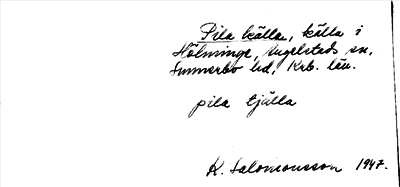 Pila källan, källa i
Hölminge, Angelstads sn,
Sunnerbo hd, Krb. län.
pila tjälla
K. Salomonsson 1947.